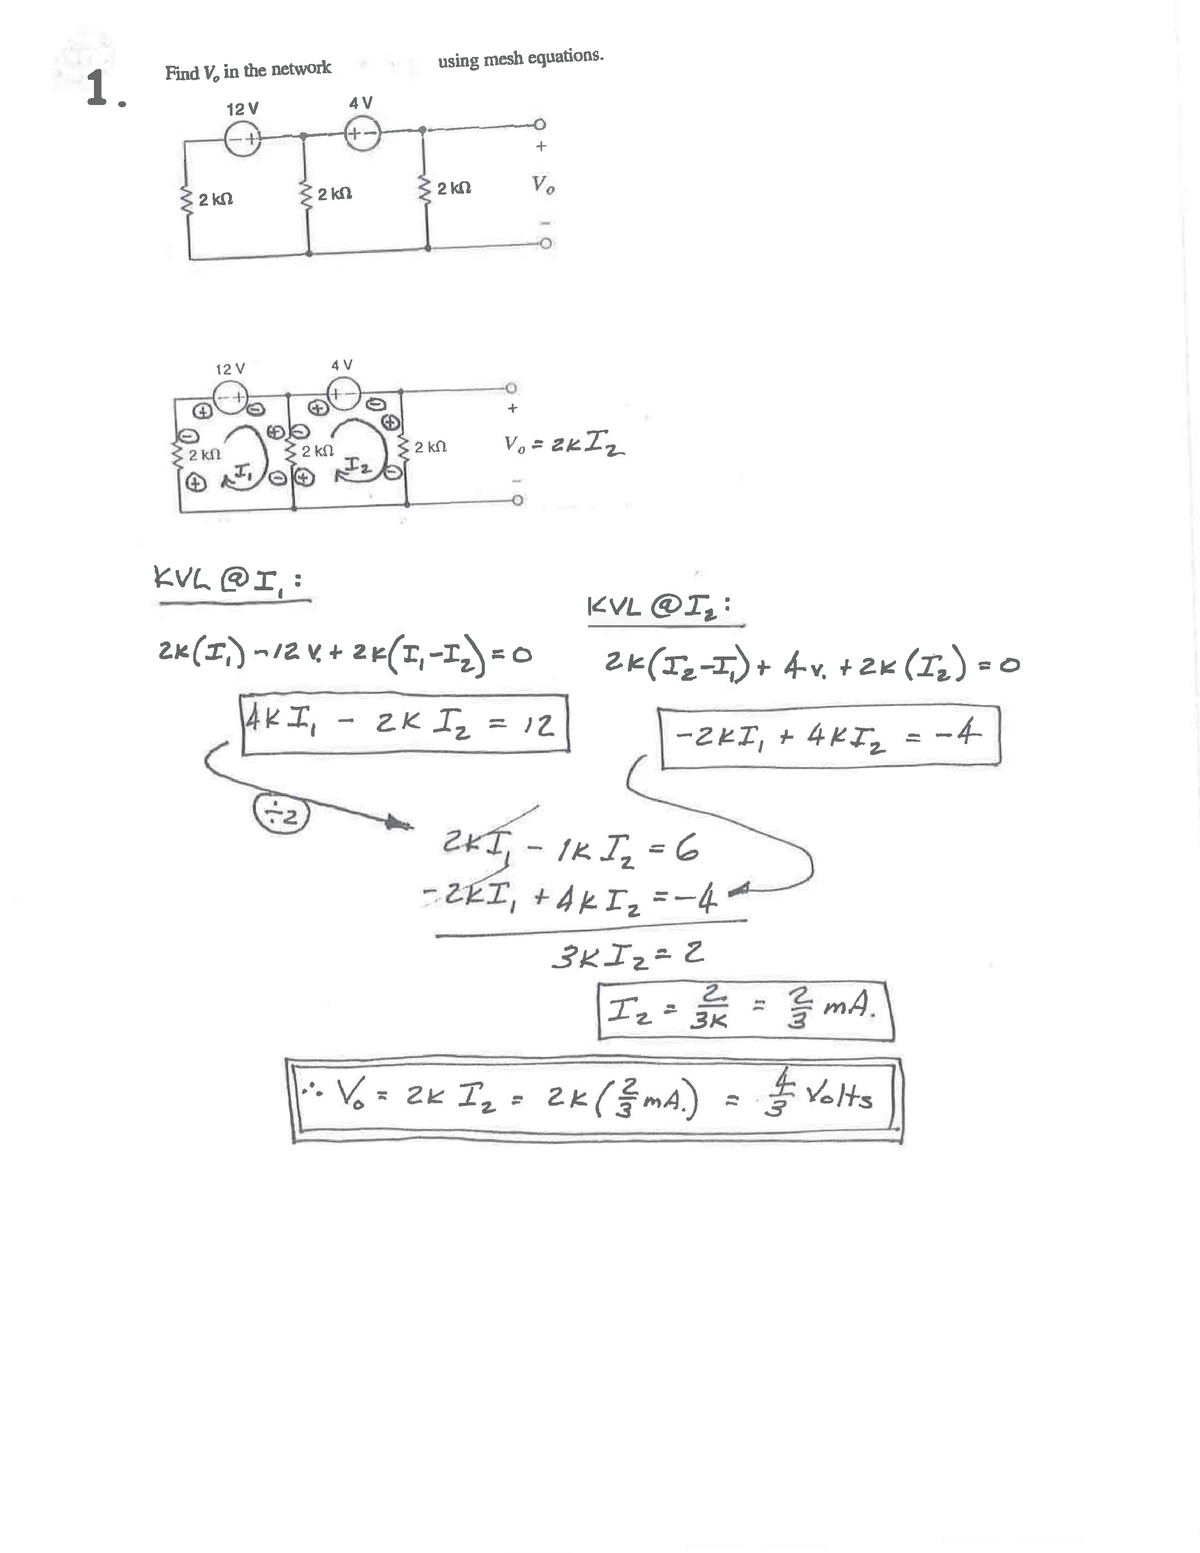 1.
Find Vₒ in the network using mesh equations.
12 V
4 V
- +
+ -
+
2 kΩ
2 kΩ
2 kΩ
Vₒ
-
12 V
4 V
- +
+ -
+
+ - + -
- + - +
2 kΩ
2 kΩ
2 kΩ
Vₒ = 2K I₂
I₁
I₂
+ - + -
-
KVL @ I₁ :
KVL @ I₂ :
2K(I₁) - 12 V. + 2K(I₁-I₂) = 0
2K(I₂-I₁) + 4 V. + 2K(I₂) = 0
4K I₁ - 2K I₂ = 12
-2K I₁ + 4K I₂ = -4
÷2
2K I₁ - 1K I₂ = 6
-2K I₁ + 4K I₂ = -4
3K I₂ = 2
I₂ = 2/3K = 2/3 mA.
∴ Vₒ = 2K I₂ = 2K (2/3 mA.) = 4/3 Volts